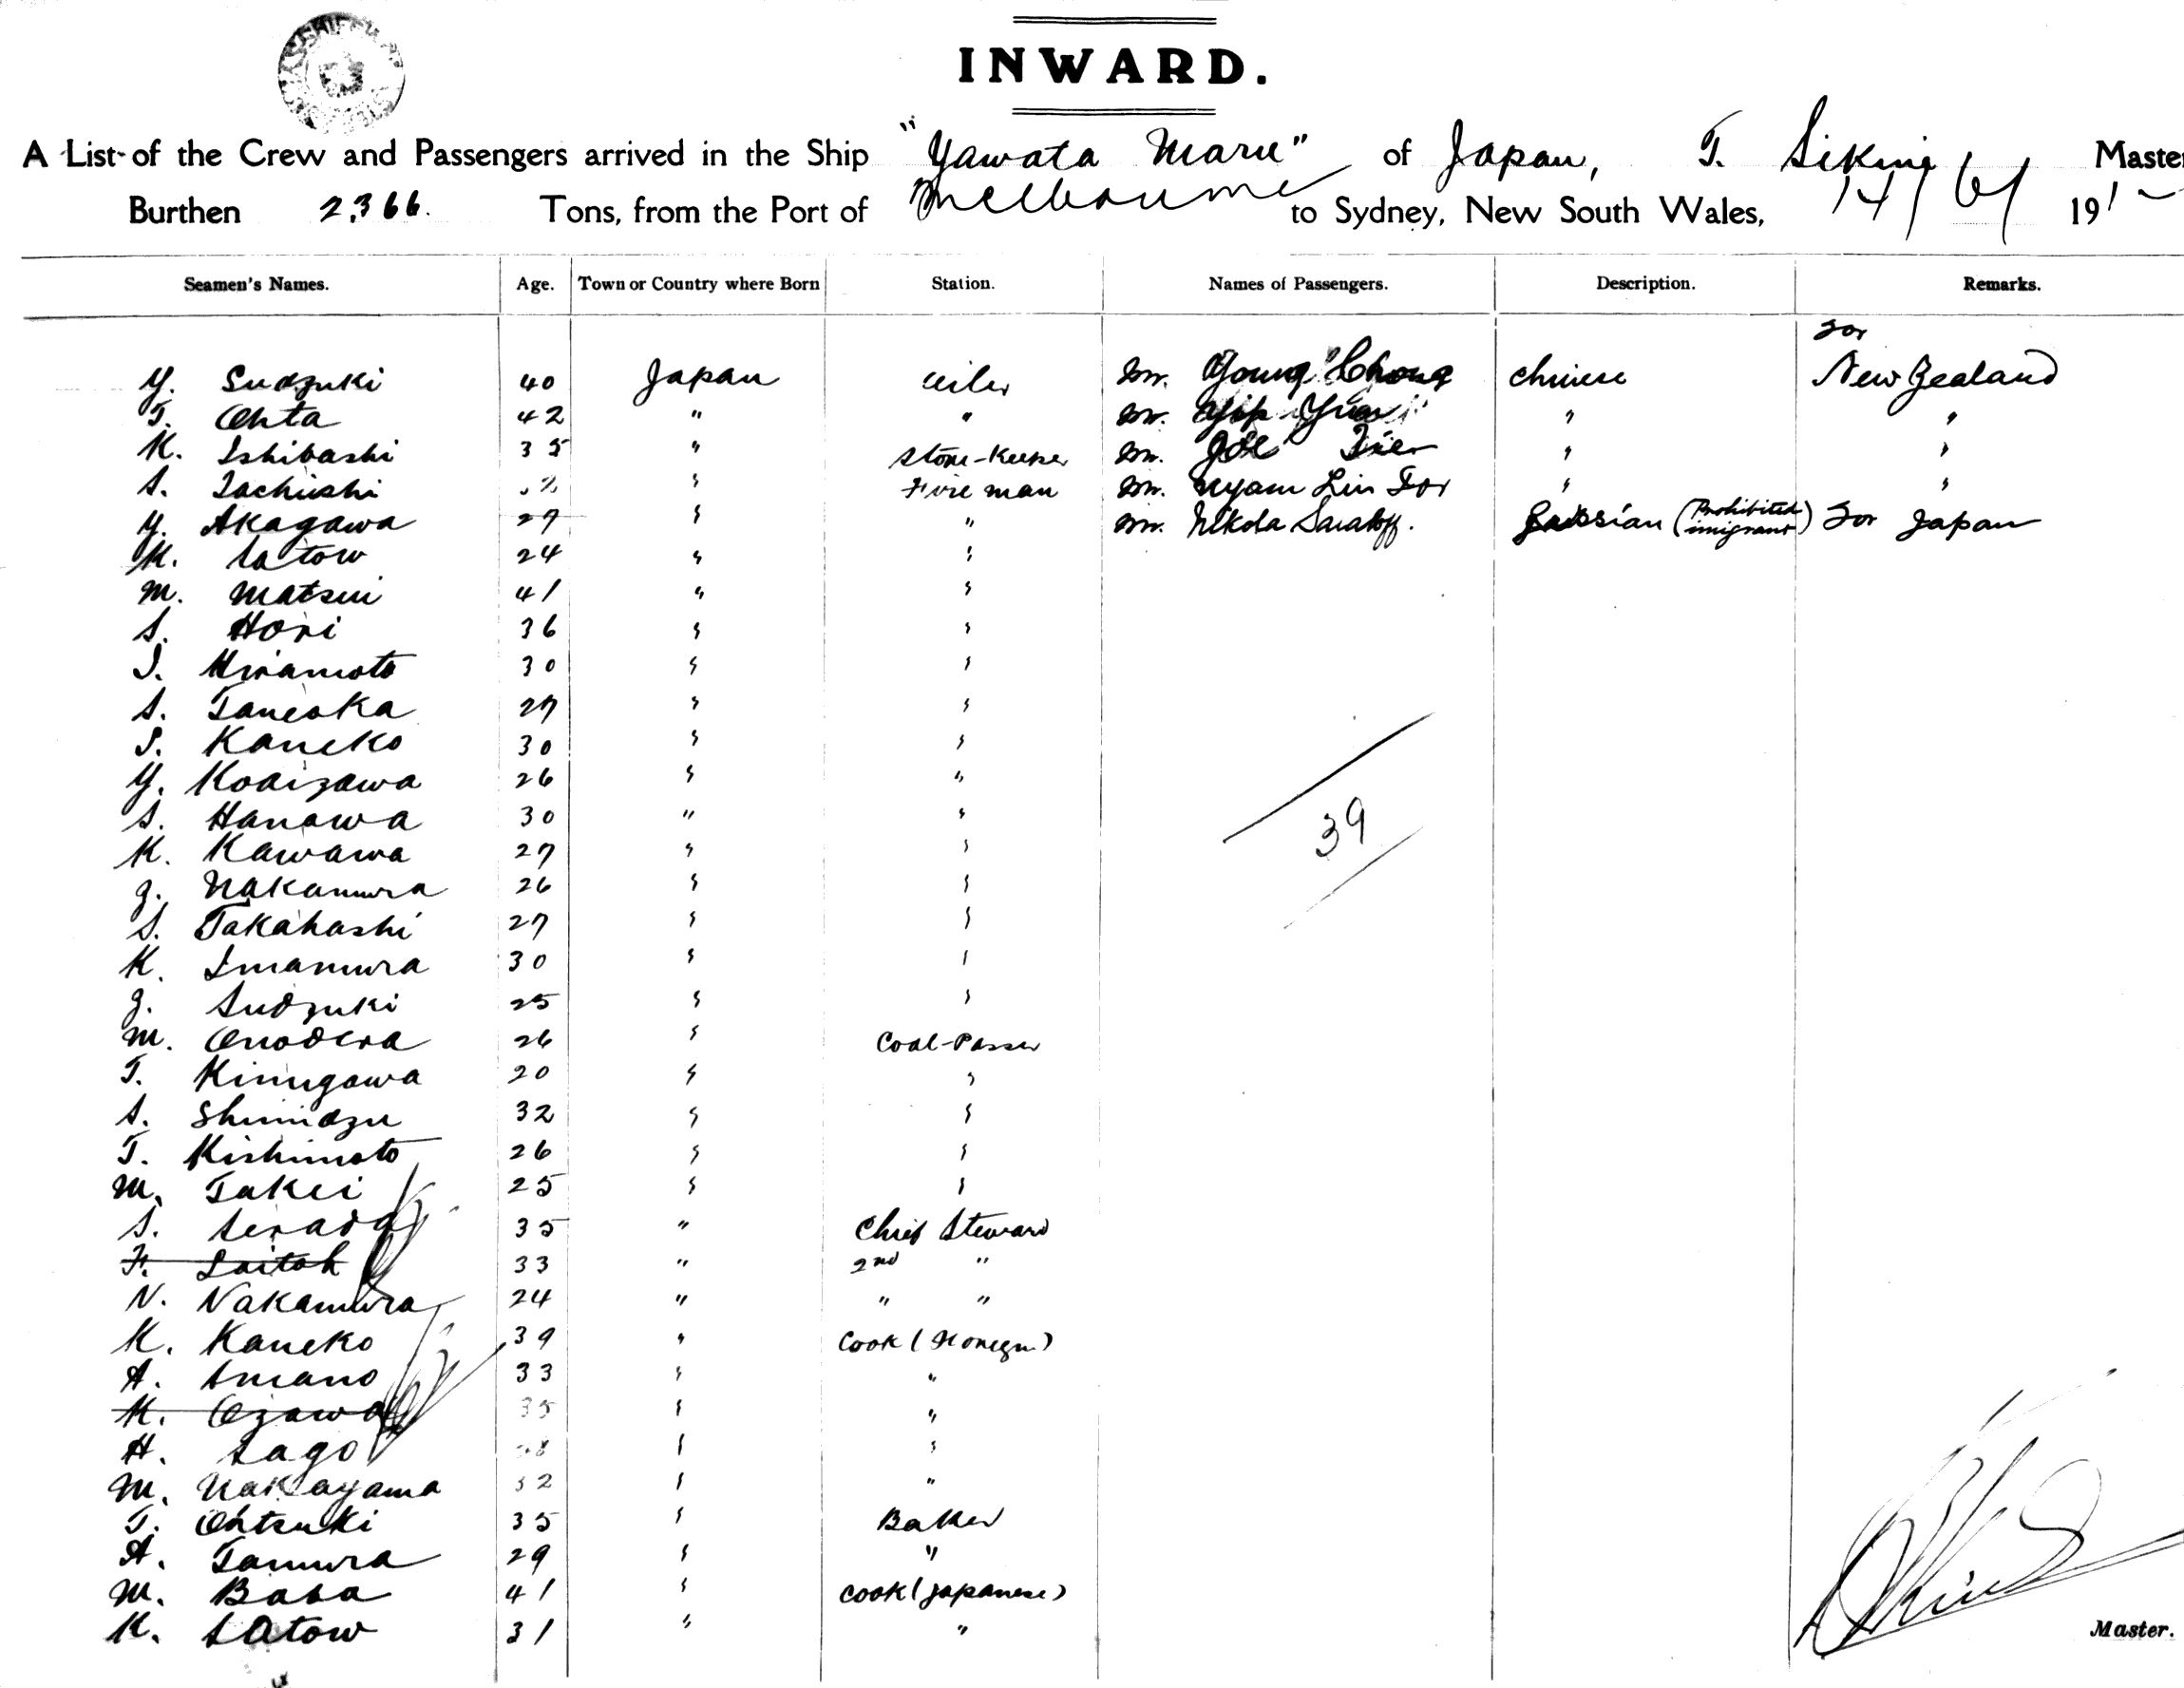 INWARD.
A List of the Crew and Passengers arrived in the Ship "Yawata Maru" of Japan, T. Sekine Master
Burthen 2,366. Tons, from the Port of Melbourne to Sydney, New South Wales, 14/6/ 191
Seamen's Names. Age. Town or Country where Born Station. Names of Passengers. Description. Remarks.
for
Y. Sudzuki 40 Japan oiler Mr. Young Chong Chinese New Zealand
T. Ohta 42 " " Mr. Yip " "
K. Ishibashi 35 " Store-Keeper Mr. Joe " "
S. " Fireman Mr. " "
Y. Akagawa 27 " " Mr. Nikola Russian (Prohibited imigrant) For Japan
K. Satow 24 " "
M. Matsui 41 " "
S. Hori 36 " "
I. Hiramoto 30 " "
S. Taneoka 27 " "
S. Kaneko 30 " "
Y. Koaizawa 26 " "
S. Hanawa 30 " "
39
K. Kawawa 27 " "
G. Nakamura 26 " "
S. Takahashi 27 " "
K. Imamura 30 " "
G. Sudzuki 25 " "
M. Onodera 26 " Coal-Passer
T. Kinugawa 20 " "
S. Shimidzu 32 " "
T. Kishimoto 26 " "
M. Takei 25 " "
S. Serada 35 " Chief Steward
F. Saitoh 33 " 2nd "
N. Nakamura 24 " " "
K. Kaneko 39 " Cook (Foreign)
A. Amano 33 " "
K. Ozawa 35 " "
H. Sago "  "
M. Nakayama 32 " "
T. Ohtsuki 35 " Baker
A. Tamura 29 " "
M. Baba 41 " Cook (Japanese)
K. Satow 31 " "
Master.